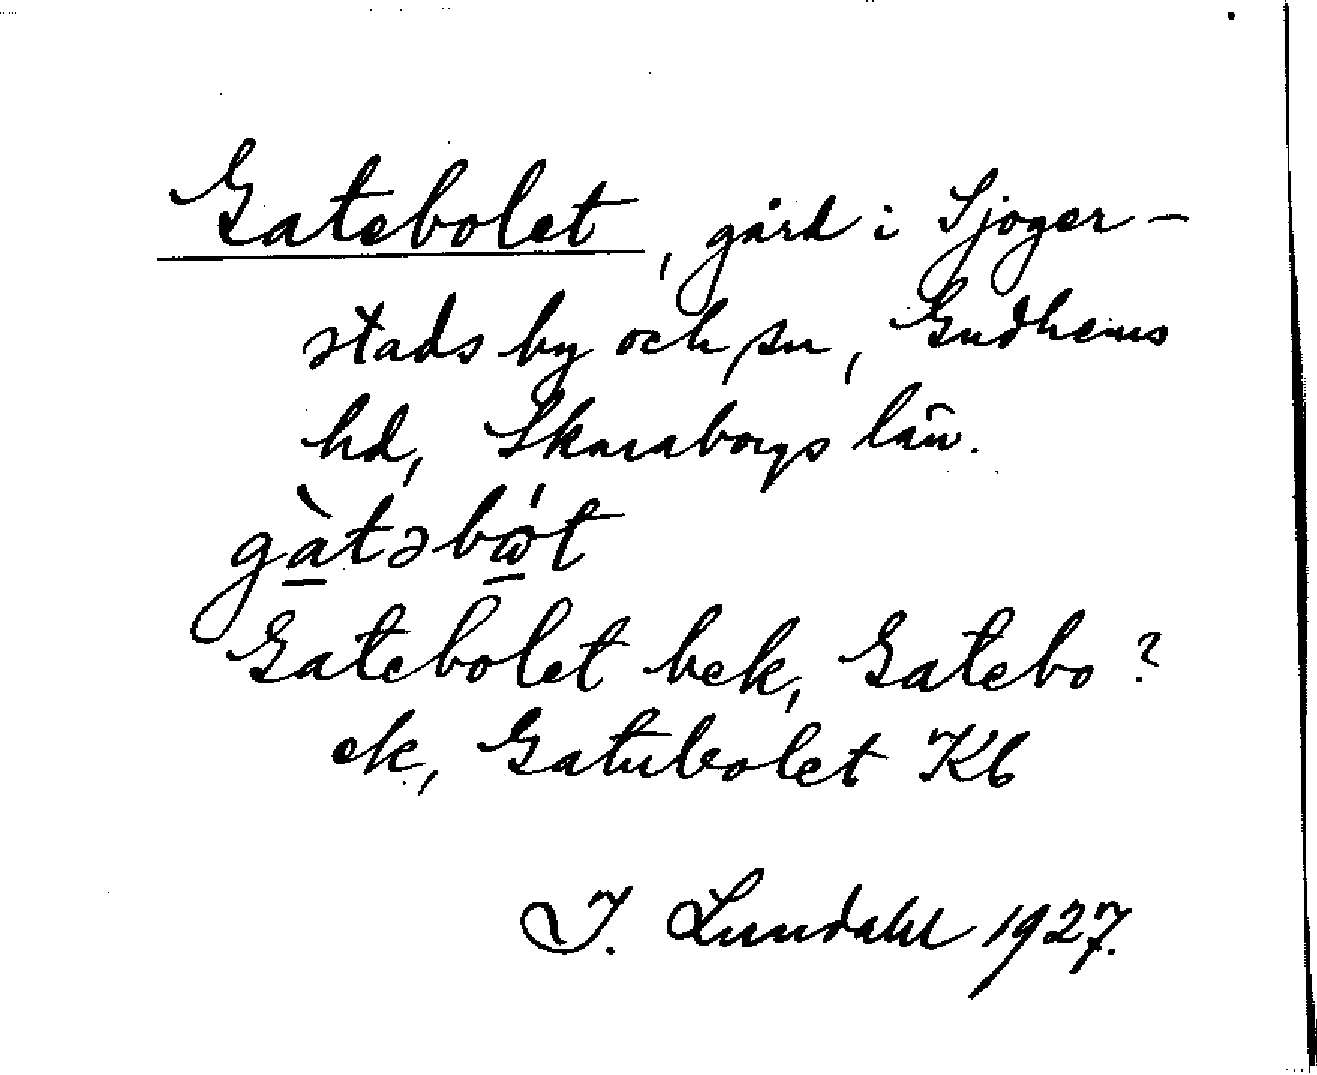 Gatebolet, gård i Sjoger-
stads by och sn, Gudhems
hd, Skaraborgs län.
gàtəbὼt
Gatebolet bek, Gatebo?
ek, Gatubolet Kb
I. Lundahl 1927.